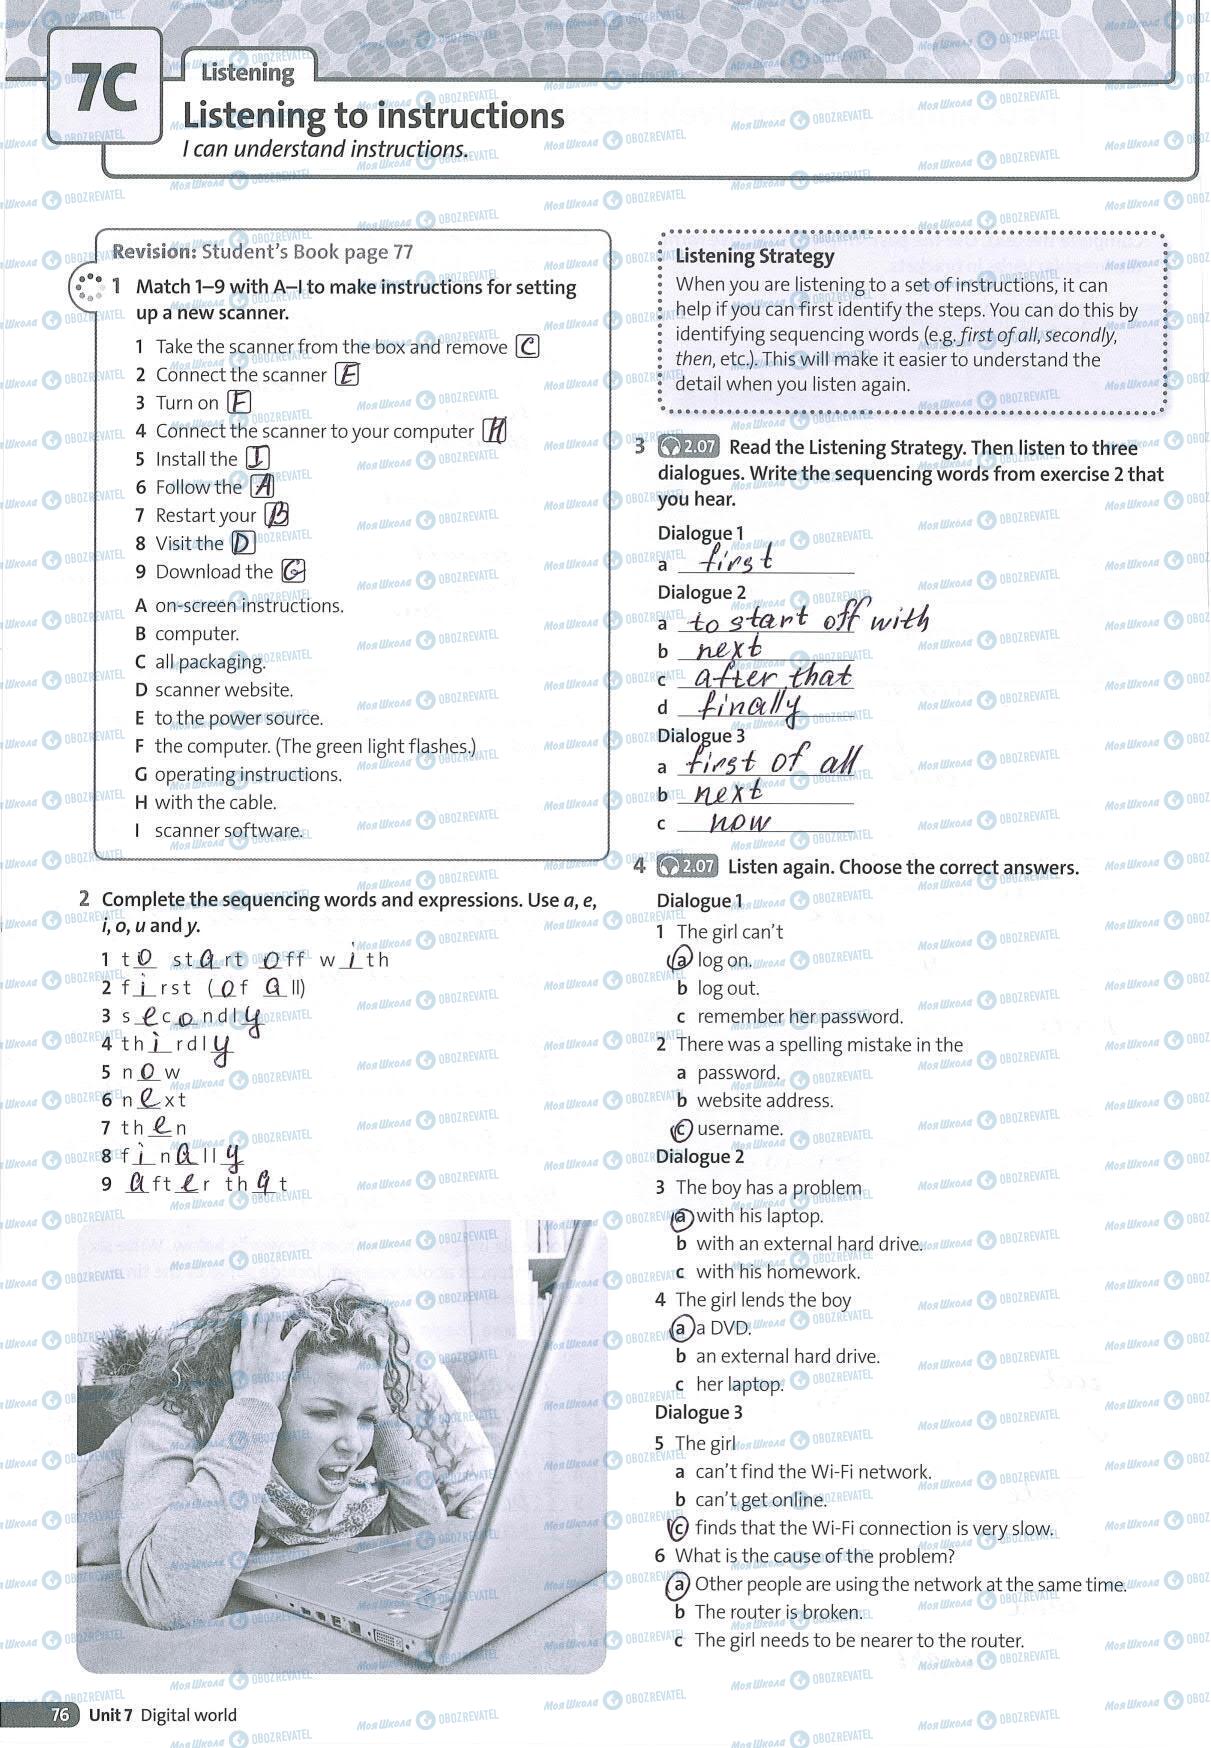 7C
Listening
Listening to instructions
I can understand instructions.
Revision: Student's Book page 77
1 Match 1–9 with A–I to make instructions for setting
up a new scanner.
1 Take the scanner from the box and remove C
2 Connect the scanner E
3 Turn on F
4 Connect the scanner to your computer H
5 Install the I
6 Follow the A
7 Restart your B
8 Visit the D
9 Download the G
A on-screen instructions.
B computer.
C all packaging.
D scanner website.
E to the power source.
F the computer. (The green light flashes.)
G operating instructions.
H with the cable.
I scanner software.
2 Complete the sequencing words and expressions. Use a, e,
i, o, u and y.
1 to start off with
2 first (of all)
3 secondly
4 thirdly
5 now
6 next
7 then
8 finally
9 after that
76 Unit 7 Digital world
Listening Strategy
When you are listening to a set of instructions, it can
help if you can first identify the steps. You can do this by
identifying sequencing words (e.g. first of all, secondly,
then, etc.). This will make it easier to understand the
detail when you listen again.
3 2.07 Read the Listening Strategy. Then listen to three
dialogues. Write the sequencing words from exercise 2 that
you hear.
Dialogue 1
a first
Dialogue 2
a to start off with
b next
c after that
d finally
Dialogue 3
a first of all
b next
c now
4 2.07 Listen again. Choose the correct answers.
Dialogue 1
1 The girl can't
a log on.
b log out.
c remember her password.
2 There was a spelling mistake in the
a password.
b website address.
c username.
Dialogue 2
3 The boy has a problem
a with his laptop.
b with an external hard drive.
c with his homework.
4 The girl lends the boy
a a DVD.
b an external hard drive.
c her laptop.
Dialogue 3
5 The girl
a can't find the Wi-Fi network.
b can't get online.
c finds that the Wi-Fi connection is very slow.
6 What is the cause of the problem?
a Other people are using the network at the same time.
b The router is broken.
c The girl needs to be nearer to the router.
Моя Школа OBOZREVATEL